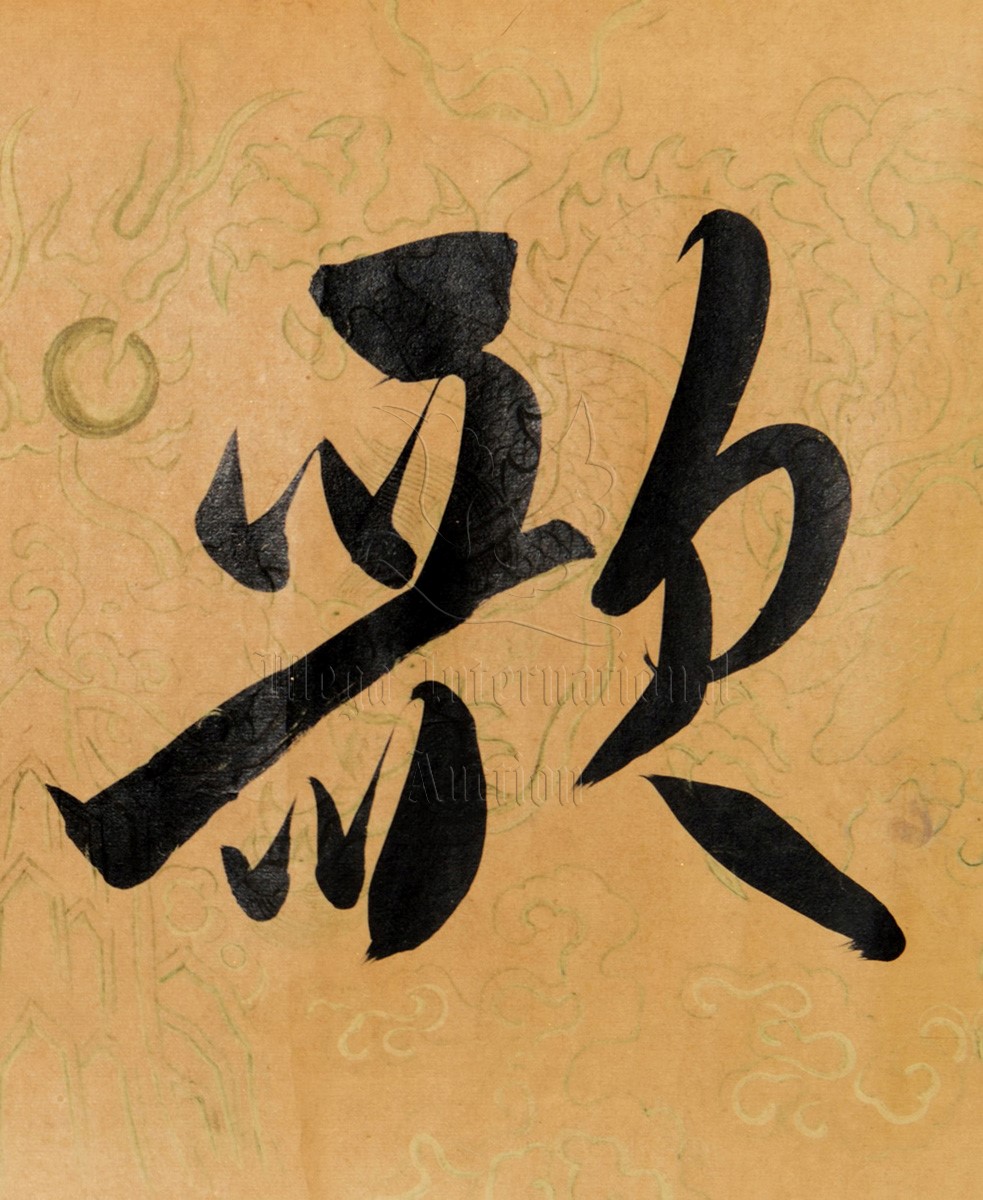 歟
Mega International
Auction